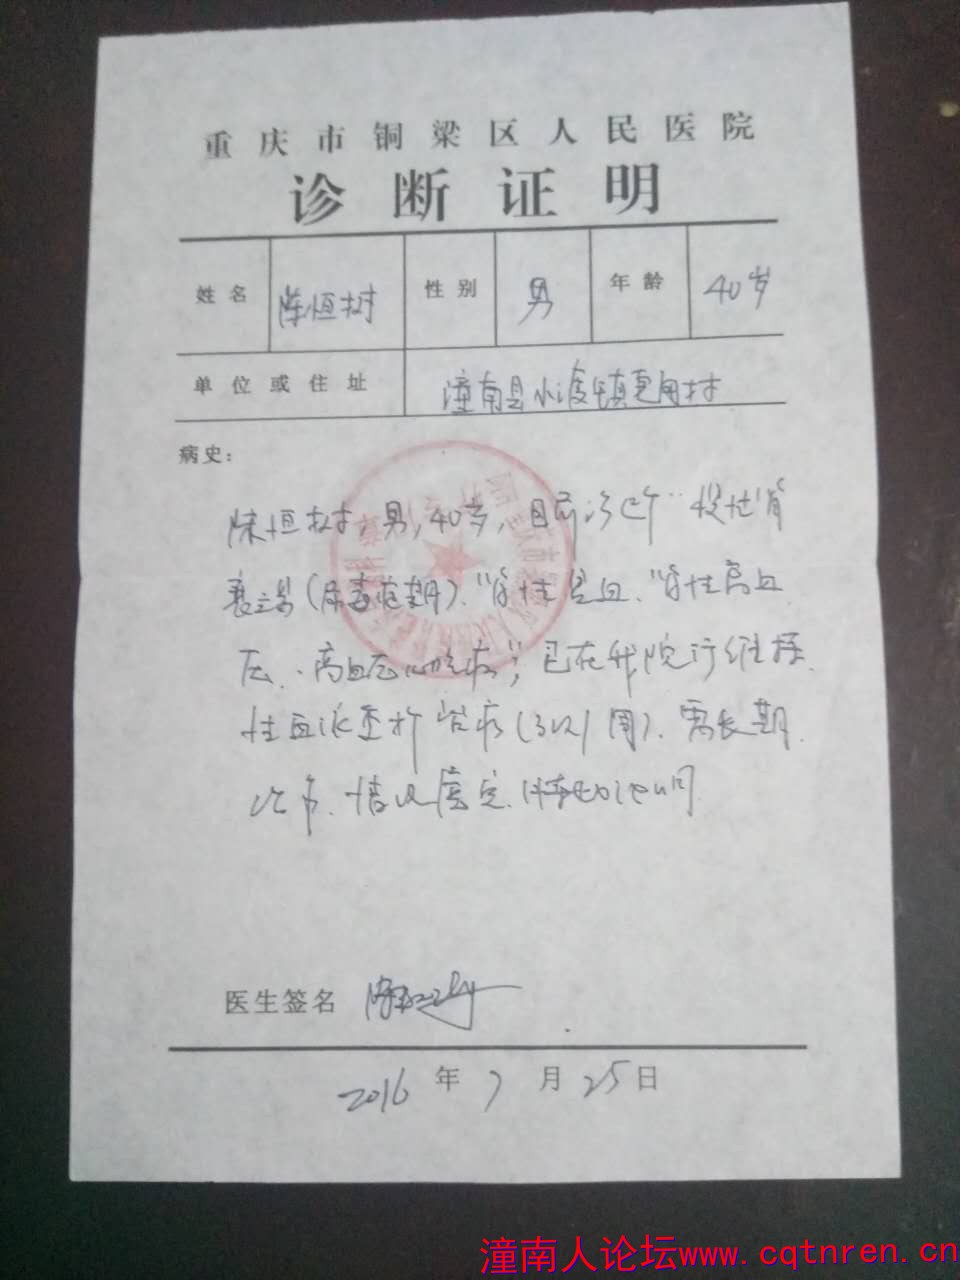 重庆市铜梁区人民医院
诊断证明
姓名 陈恒树 性别 男 年龄 40岁
单位或住址 潼南县小渡镇
病史：
陈恒树，男，40岁，目前诊断"慢性肾
衰竭(尿毒症期)、"肾性贫血、"肾性高血
压、高血压心脏病"，已在我院行维持
性血液透析治疗(3次/周)、需长期
治疗、情况属实、
医生签名
2016年7月25日
潼南人论坛www.cqtnren.cn